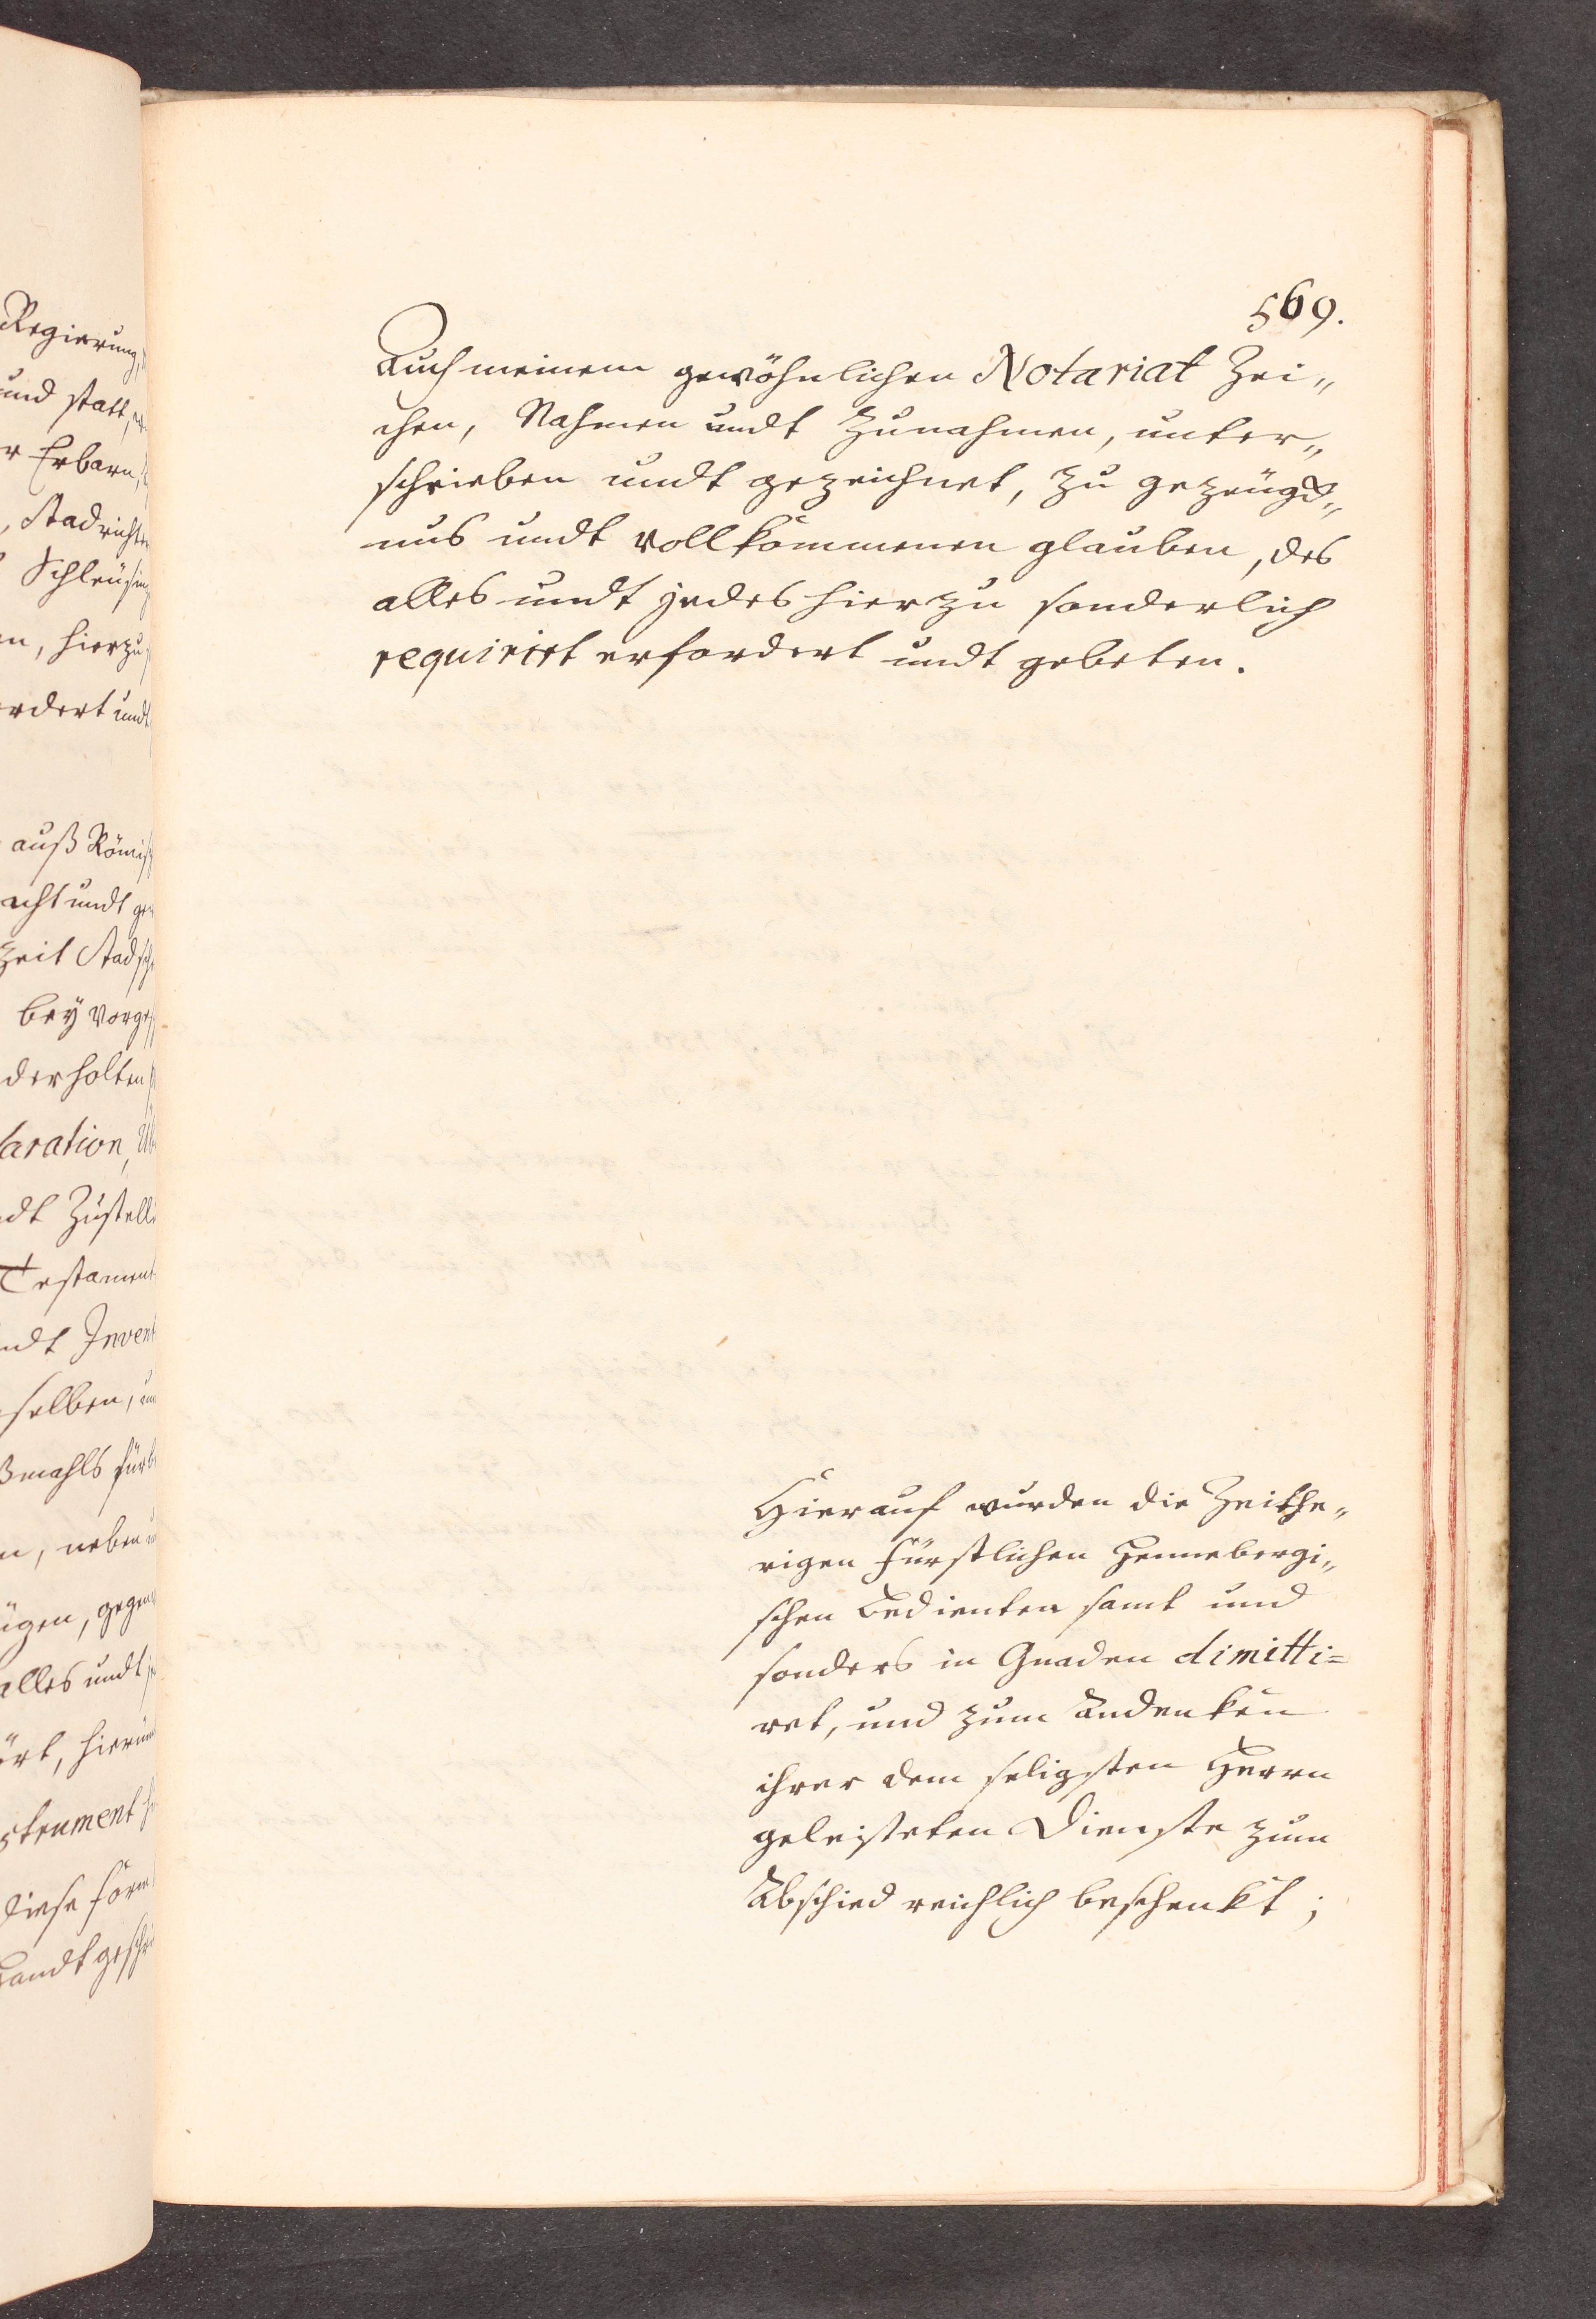 569.
Auch meinem gewöhnlichen Notariat Zei„
chen, Nahmen undt Zunahmen, unter„
schrieben undt gezeichnet, zu gezeügd„
nus undt vollkommenen glauben, des
alles undt jedes hierzu sonderlich
requirirt erfordert undt gebeten.
Hierauf wurden die Zeithe„
rigen Fürstlichen Hennebergi„
schen Bedienten samt und
sonders in Gnaden dimitti=
ret, und zum Andenken
ihrer dem seligsten Herrn
geleisteten Dienste zum
Abschied reichlich beschenkt;
Regierung,
und statt,
Erbarn,
hierzu
undt
auß
undt
Zeit
bey
derholten
selben,
neben
alles undt
diese